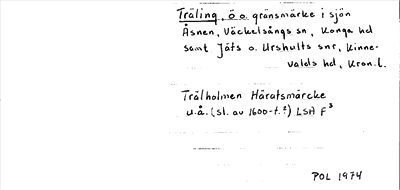 Träling, ö o. gränsmärke i sjön
Åsnen, Väckelsångs sn, Konga hd
samt Jäts o. Urshults snr, Kinne-
valds hd, Kron.l.
Trälholmen Häratsmärcke
u.å. (sl. av 1600-t.?) LSA F³
POL 1974